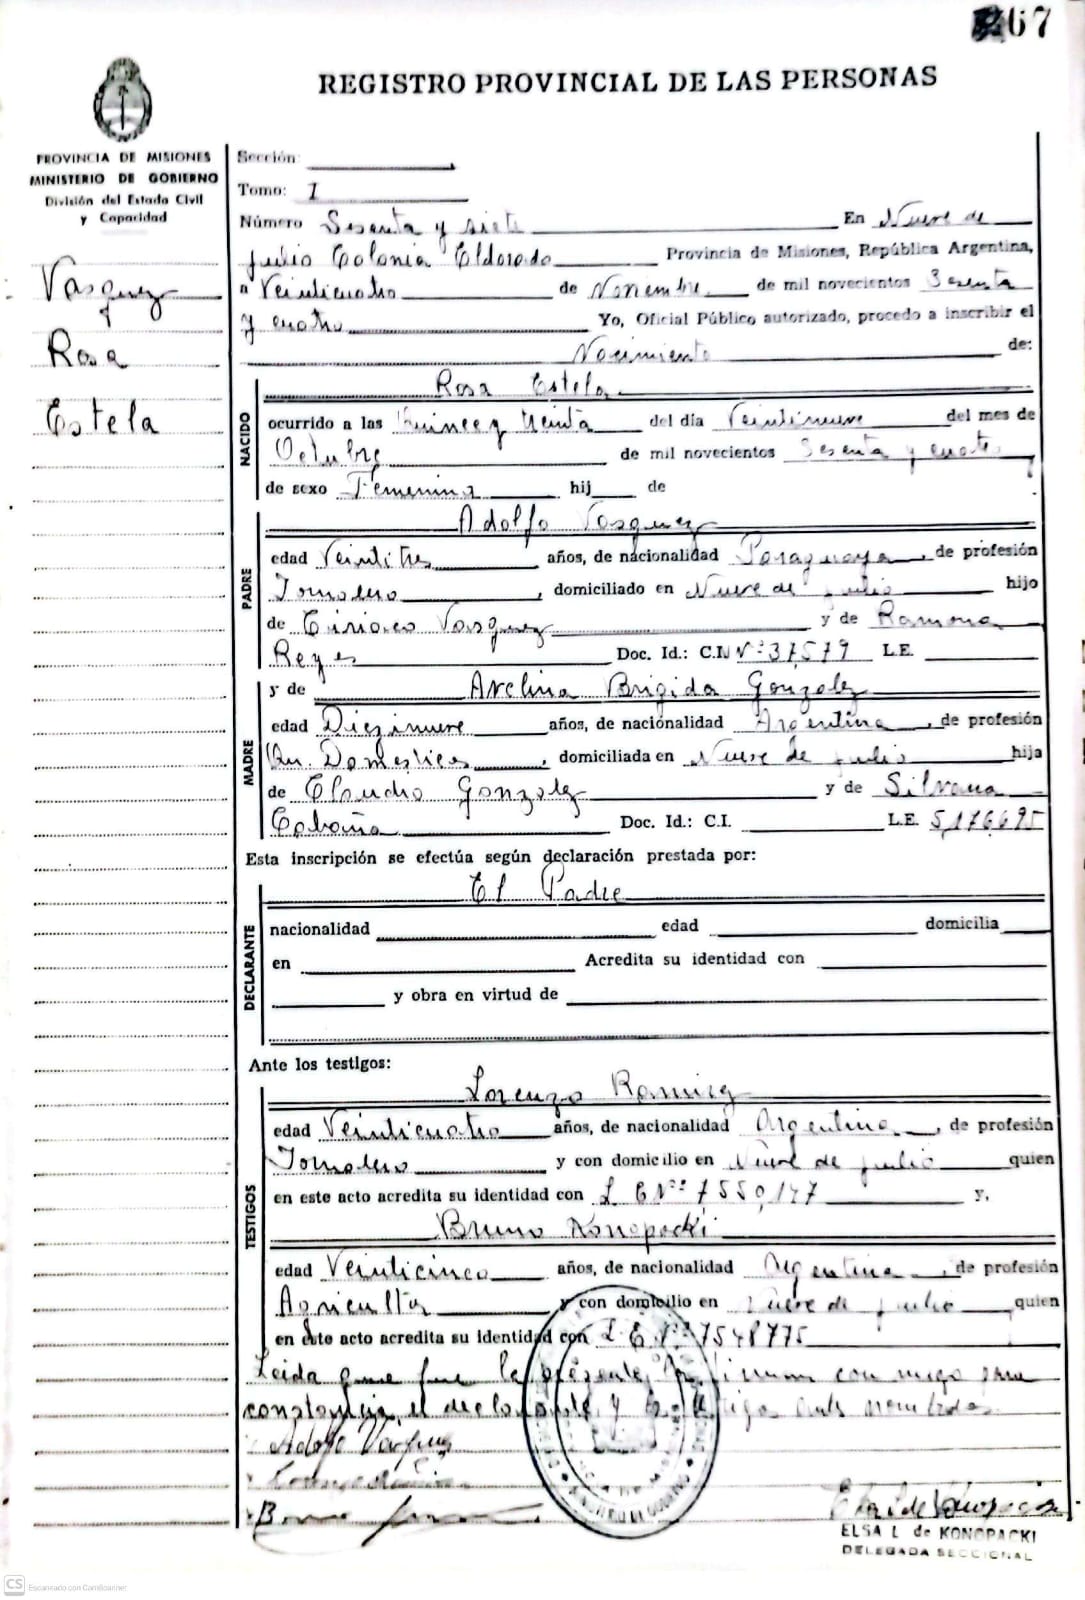 67
REGISTRO PROVINCIAL DE LAS PERSONAS
PROVINCIA DE MISIONES
MINISTERIO DE GOBIERNO
División del Estado Civil
y Capacidad
Vasquez
Rosa
Estela
Sección:
Tomo: 1
Número Sesenta y siete En Nueve de
Julio Colonia Eldorado Provincia de Misiones, República Argentina,
a Veinticuatro de Noviembre de mil novecientos Sesenta
y cuatro Yo, Oficial Público autorizado, procedo a inscribir el
Nacimiento de:
NACIDO
Rosa Estela
ocurrido a las Quince y treinta del día Veintinueve del mes de
Octubre de mil novecientos Sesenta y cuatro
de sexo Femenino hij de
PADRE
Adolfo Vasquez
edad Veintitres años, de nacionalidad Paraguaya, de profesión
Jornalero, domiciliado en Nueve de julio hijo
de Ciriaco Vasquez y de Ramona
Reyes Doc. Id.: C.I. Nº 37579 L.E.
MADRE
y de Avelina Brigida Gonzalez
edad Diezinueve años, de nacionalidad Argentina, de profesión
Qu. Domesticos, domiciliada en Nueve de julio hija
de Claudio Gonzalez y de Silvana
Cabaña Doc. Id.: C.I. L.E. 5,176,695
Esta inscripción se efectúa según declaración prestada por:
DECLARANTE
El Padre
nacionalidad edad domicilia
en Acredita su identidad con
y obra en virtud de
Ante los testigos:
TESTIGOS
Lorenzo Ramirez
edad Veinticuatro años, de nacionalidad Argentina, de profesión
Jornalero y con domicilio en Nueve de julio quien
en este acto acredita su identidad con L E Nº 7550,147 y,
Bruno Konopacki
edad Veinticinco años, de nacionalidad Argentina, de profesión
Agricultor y con domicilio en Nueve de julio quien
en este acto acredita su identidad con L E Nº 7548775
Leida que fue la presente, la firman con migo para
constancia, el declarante, y los testigos antes nombrados.
Adolfo Vasquez
ELSA L de KONOPACKI
DELEGADA SECCIONAL
CS Escaneado con CamScanner